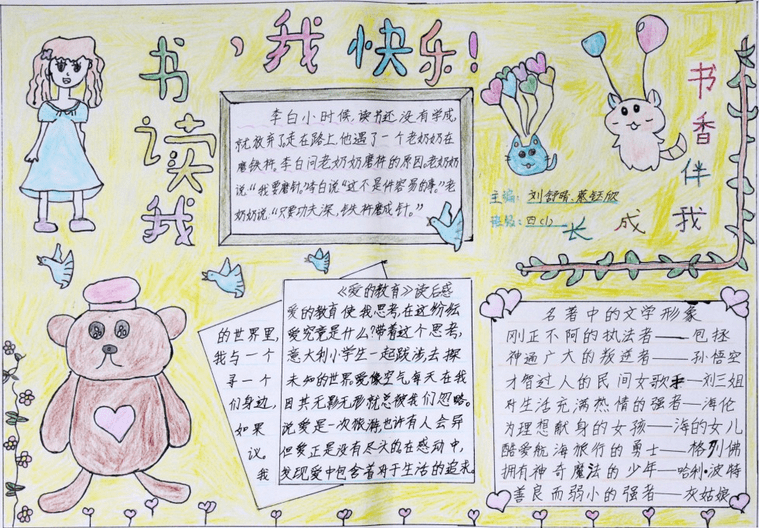 我读书,我快乐!
李白小时候,读书还没有学成,
就放弃了,走在路上,他遇了一个老奶奶在
磨铁杵。李白问老奶奶磨杵的原因,老奶奶
说“我要磨针,”李白说“这不是件容易的事。”老
奶奶说:“只要功夫深,铁杵磨成针。”
书香伴我
成长
主编:刘舒晴、
班级:四(1)
《爱的教育》读后感
爱的教育使我思考,在这纷纭
爱究竟是什么?带着这个思考,
意大利小学生一起跋涉去探
未知的世界爱像空气每天在我
因其无影无形就总被我们忽略。
说爱是一次旅游,也许有人会异
但爱正是没有尽头的,在感动中,
发现爱中包含着对于生活的追求
的世界里,
我与一个
寻一个
们身边,
如果
议,
我
名著中的文学形象
刚正不阿的执法者——包拯
神通广大的叛逆者——孙悟空
才智过人的民间女歌手—刘三姐
对生活充满热情的强者—海伦
为理想献身的女孩—海的女儿
酷爱航海旅行的勇士—格列佛
拥有神奇魔法的少年—哈利·波特
善良而弱小的强者—灰姑娘